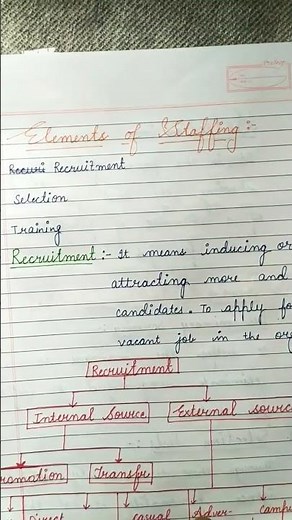 Elements of Staffing :-
Recuri Recruitment
Selection
Training
Recruitment :- It means inducing or
attracting more and
candidates. To apply fo
vacant job in the or
Recruitment
Internal Source External sourc
romotion Transfr
Direct Casual Adver- Campu